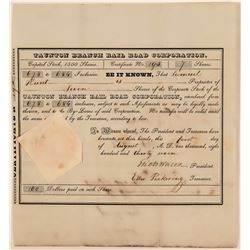 TAUNTON BRANCH RAIL ROAD CORPORATION.
Capital Stock, 2500 Shares. Certificate No. 7 Shares.
678 to 684 Inclusive. BE IT KNOWN, That Samuel
is Proprietor of
Seven Shares of the Corporate Stock of the
TAUNTON BRANCH RAIL ROAD CORPORATION, numbered from
678 to 684 inclusive, subject to such Assessments as may be legally made
thereon, and to the By-Laws of said Corporation. Transferrable
the same by the Treasurer, according to law.
In Witness whereof, The President and Treasurer have
hereunto set their hands, this first
of August A. D. one thousand, eight
hundred and thirty
President.
Pickering Treasurer.
100 Dollars paid on each Share.